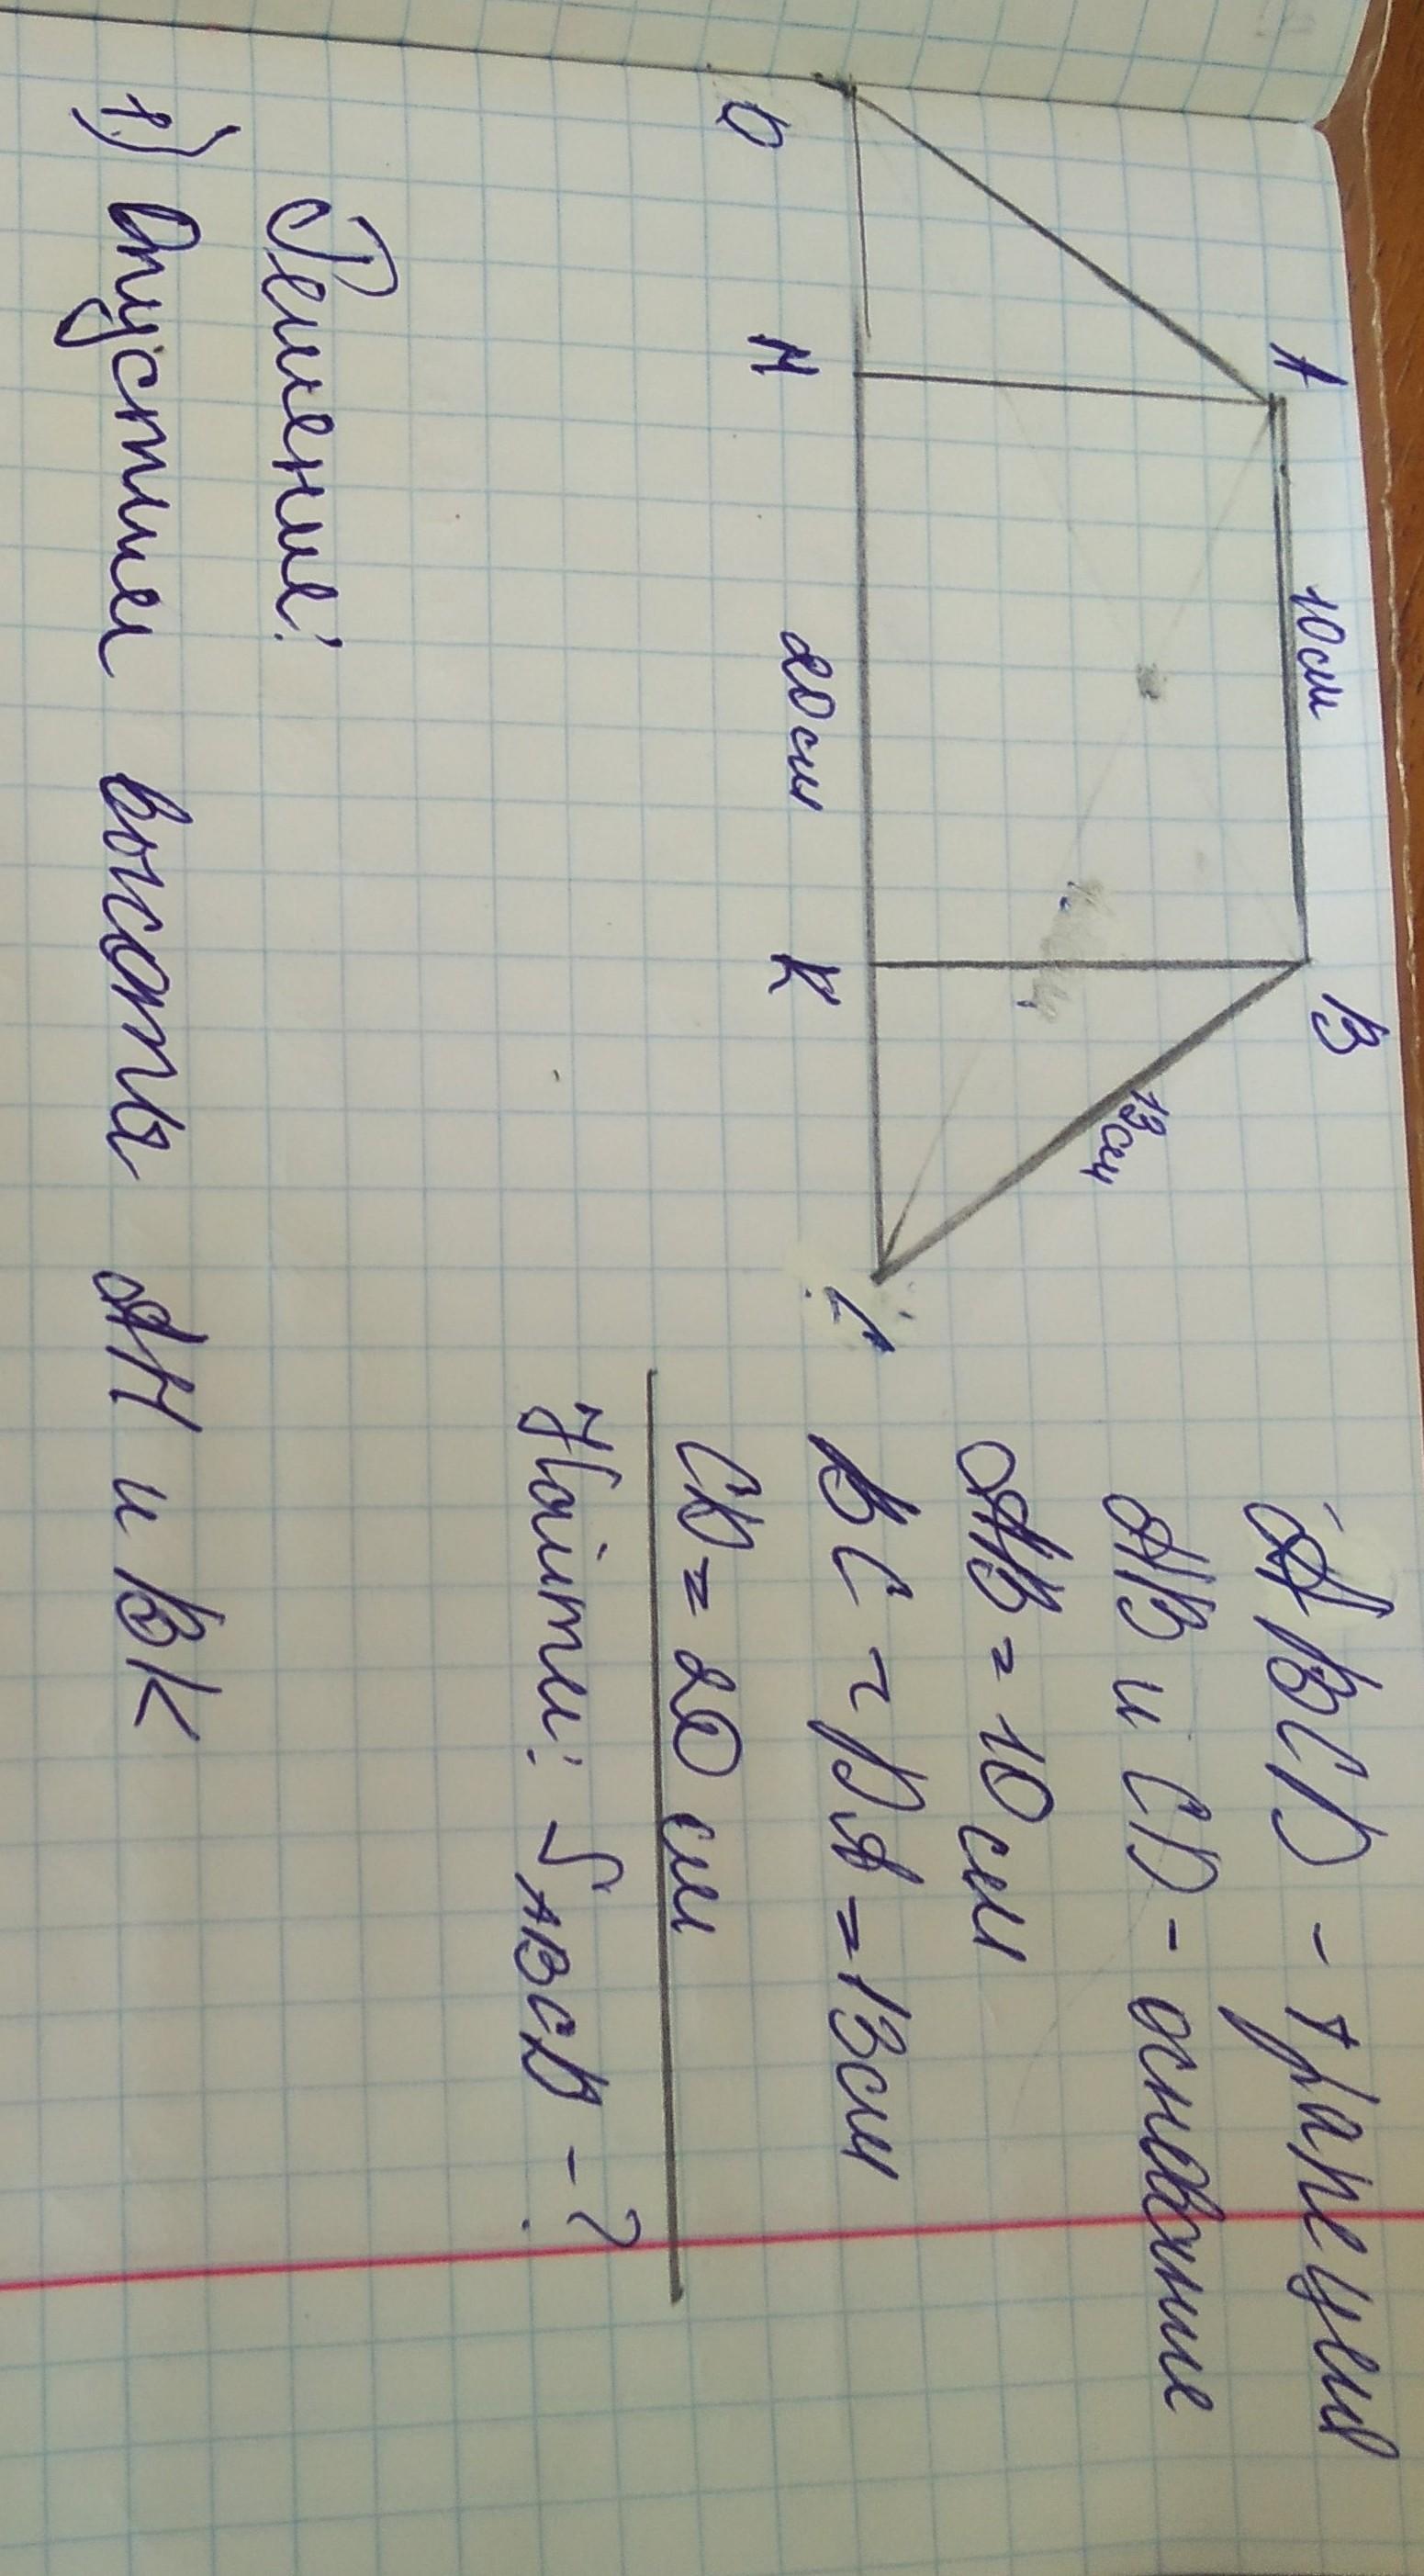 ABCD - трапеция
AB и CD - основание
AB = 10 см
BC = DA = 13 см
CD = 20 см
Найти: S ABCD - ?
A
10 см
B
13 см
D
H
20 см
K
C
Решение:
1) Опустим высоты AH и BK